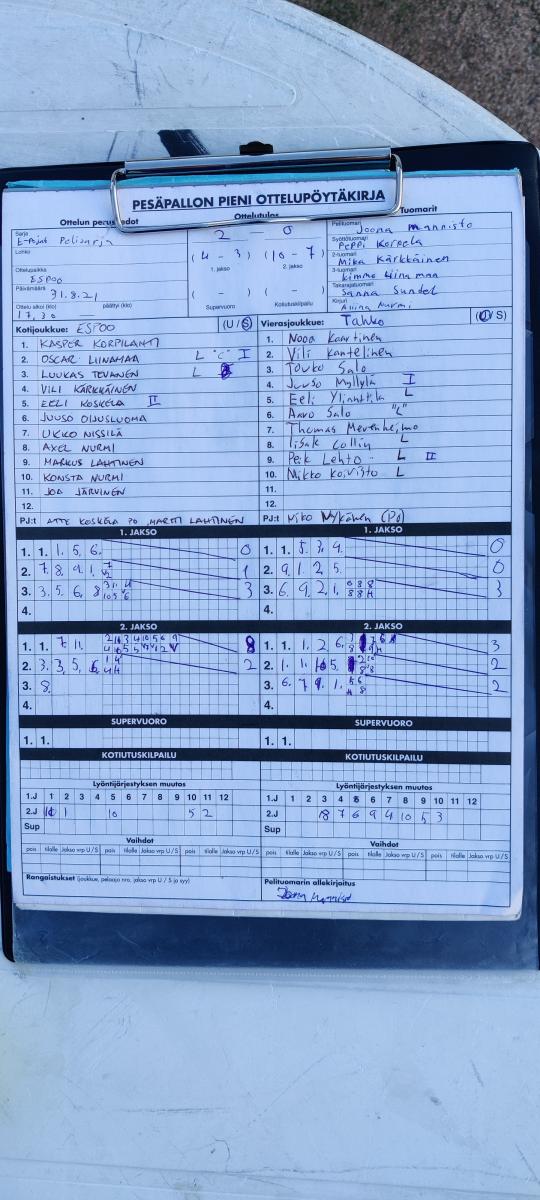 PESÄPALLON PIENI OTTELUPÖYTÄKIRJA
Ottelun perustiedot Ottelutulos Tuomarit
Sarja
E-Pojat
Lohko
Ottelupaikka
ESPOO
Päivämäärä
31.8.21
Ottelu alkoi (klo) päättyi (klo)
17.30
2 - 0
(4 - 3) (10 - 7)
1. jakso 2. jakso
( - ) ( - )
Supervuoro Kotiutuskilpailu
Pelituomari
Joona Mannisto
Syöttötuomari
Peppi Korpela
2-tuomari
Mika Kärkkäinen
3-tuomari
Kimmo
Takarajatuomari
Sanna Sundel
Kirjuri
Nurmi
Kotijoukkue: ESPOO (U/S)
1. KASPER KORPILAHTI
2. OSCAR LIINAMAA L "C" I
3. LUUKAS TEVANEN L
4. VILI KÄRKKÄINEN
5. EELI KOSKELA II
6. JUUSO OIJUSLUOMA
7. UKKO NISSILÄ
8. AXEL NURMI
9. MARKUS LAHTINEN
10. KONSTA NURMI
11. JOA JÄRVINEN
12.
PJ:t ATTE KOSKELA PO MARTTI LAHTINEN
Vierasjoukkue: Tahko (U/S)
1. Nooa Kaartinen
2. Vili Kantelinen
3. Touko Salo
4. Juuso Myllylä I
5. Eeli L
6. Aavo Salo "C"
7. Thomas Merenheimo
8. Iisak Collin L
9. Peik Lehto L II
10. Mikko Koivisto L
11.
12.
PJ:t Niko Nykänen (Po)
1. JAKSO
1. 1. 1. 5. 6. 0
2. 7. 8. 9. 1. 1
3. 3. 5. 6. 8 3
4.
1. JAKSO
1. 1. 5. 3. 4. 0
2. 9. 1. 2. 5. 0
3. 6. 9. 2. 1. 3
4.
2. JAKSO
1. 1. 7. 11. 8
2. 3. 3. 5. 6. 2
3. 8.
4.
2. JAKSO
1. 1. 1. 2 6. 3
2. 1. 1. 5. 2
3. 6. 7 9. 1. 2
4.
SUPERVUORO
1. 1.
SUPERVUORO
1. 1.
KOTIUTUSKILPAILU
KOTIUTUSKILPAILU
Lyöntijärjestyksen muutos
1.J 1 2 3 4 5 6 7 8 9 10 11 12
2.J 1 10 5 2
Sup
Lyöntijärjestyksen muutos
1.J 1 2 3 4 5 6 7 8 9 10 11 12
2.J 8 7 6 9 4 10 5 3
Sup
Vaihdot
pois tilalle Jakso vrp U/S pois tilalle Jakso vrp U/S
Vaihdot
pois tilalle Jakso vrp U/S pois tilalle Jakso vrp U/S
Rangaistukset (joukkue, pelaaja nro, jakso vrp U / S ja syy)
Pelituomarin allekirjoitus